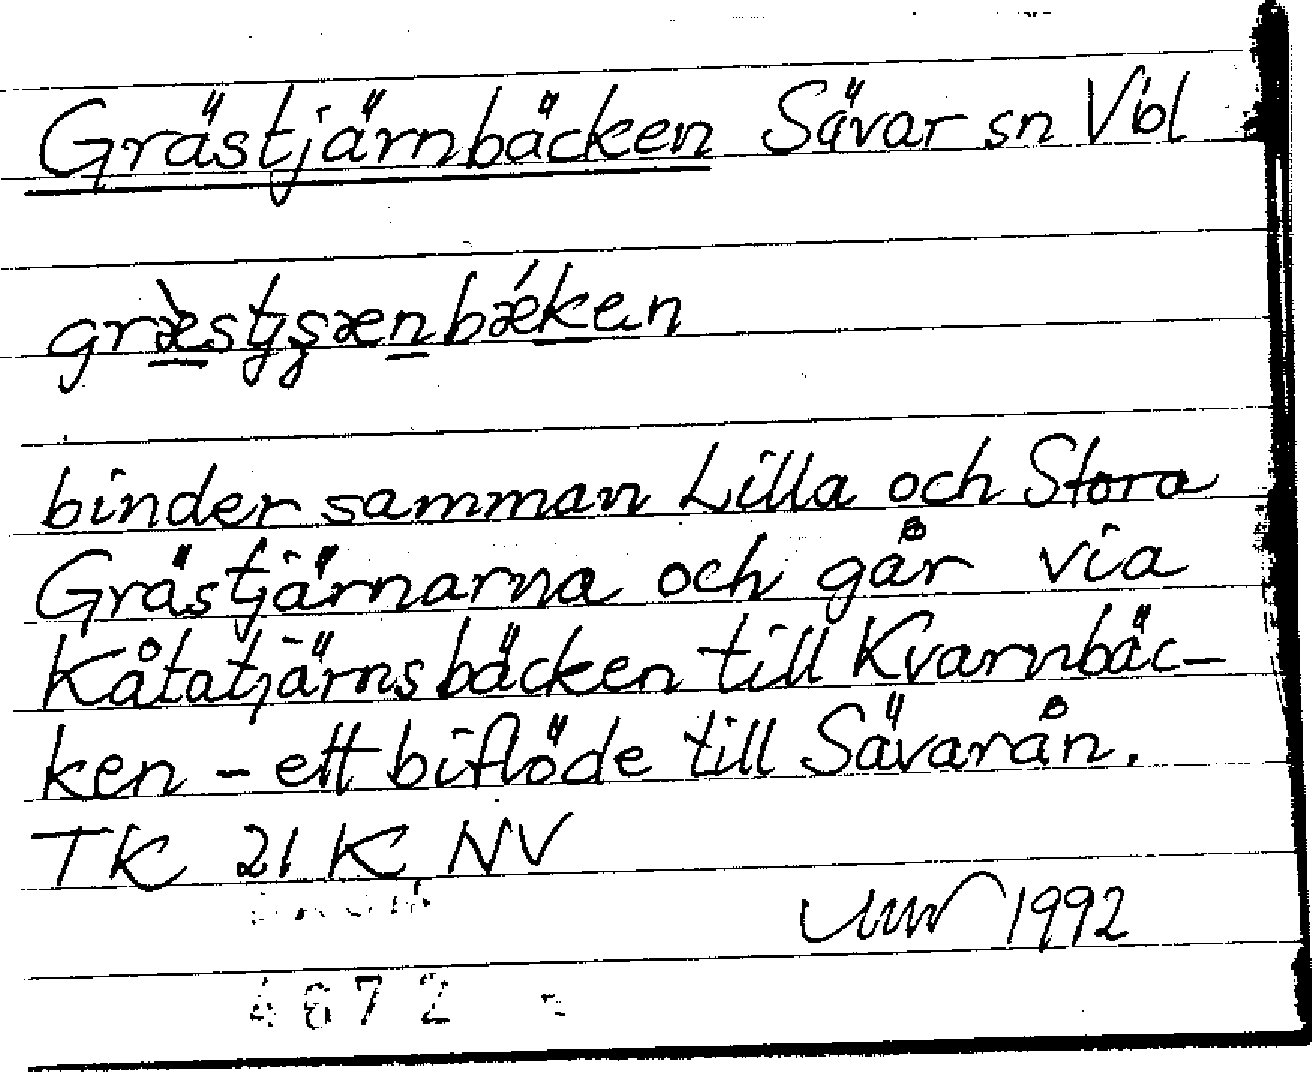 Grästjärnbäcken Sävar sn Vbl
binder samman Lilla och Stora
Grästjärnarna och går via
Kåtatjärnsbäcken till Kvarnbäc-
ken - ett biflöde till Sävarån.
TK 21 K NV
1992
4672